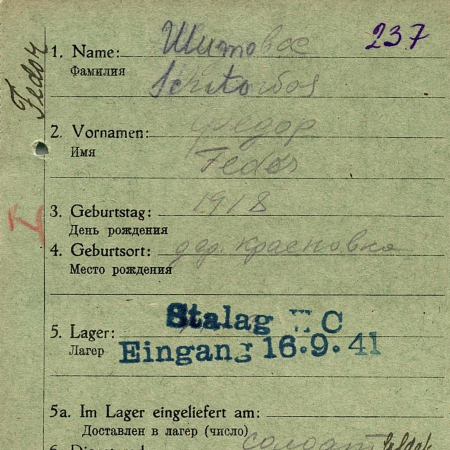 237
Fedor
1. Name:
Фамилия
2. Vornamen: Федор
Имя Fedor
3. Geburtstag: 1918
День рождения
4. Geburtsort: дер. Красновка
Место рождения
5. Lager: Stalag C
Лагер Eingang 16.9.41
5a. Im Lager eingeliefert am:
Доставлен в лагер (число)
солдат Soldat